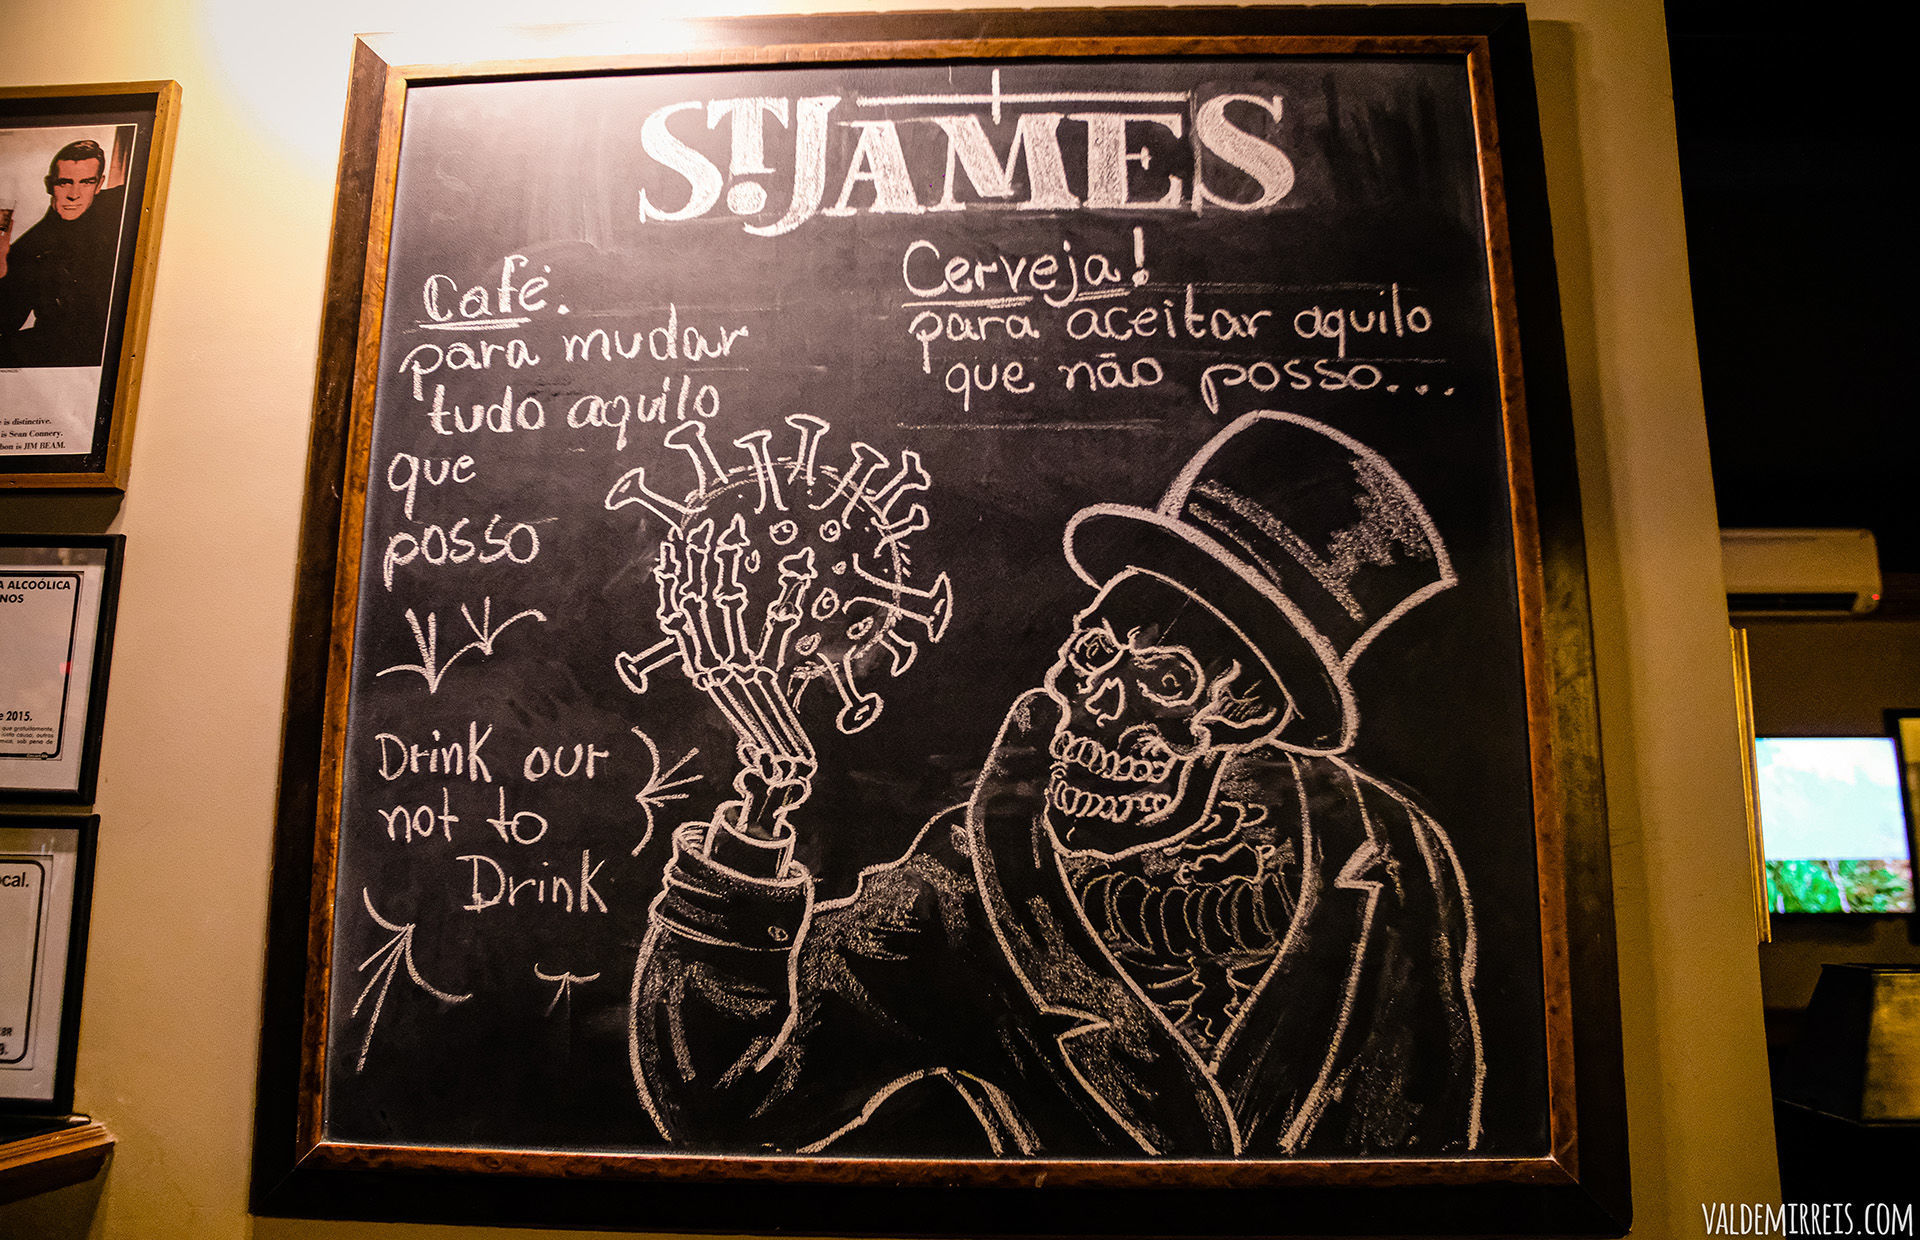 ST. JAMES
Café.
para mudar
tudo aquilo
que
posso
Cerveja!
para aceitar aquilo
que não posso...
Drink our
not to
Drink
is distinctive.
is Sean Connery.
bon is JIM BEAM.
A ALCOÓLICA
NOS
e 2015.
ocal.
VALDEMIRREIS.COM